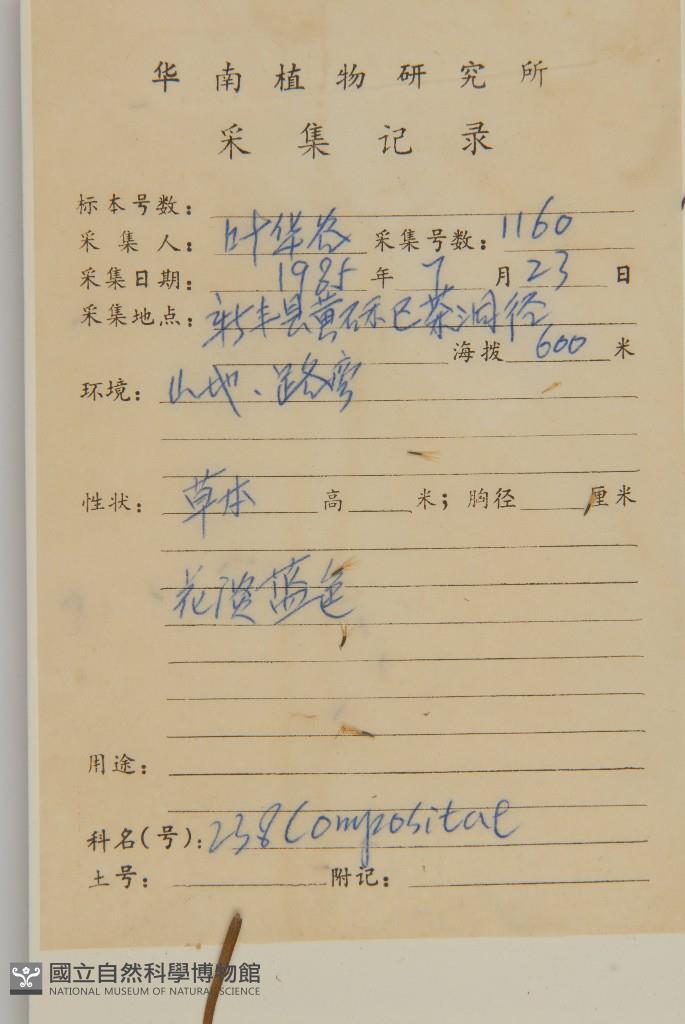 华南植物研究所
采集记录
标本号数:
采集人: 叶华谷 采集号数: 1160
采集日期: 1985年7月23日
采集地点: 新丰县黄磜区茶洞径
海拨 600 米
环境: 山地、路旁
性状: 草本 高 米; 胸径 厘米
花淡蓝色
用途:
科名(号): 238 Compositae
土号: 附记:
國立自然科學博物館
NATIONAL MUSEUM OF NATURAL SCIENCE